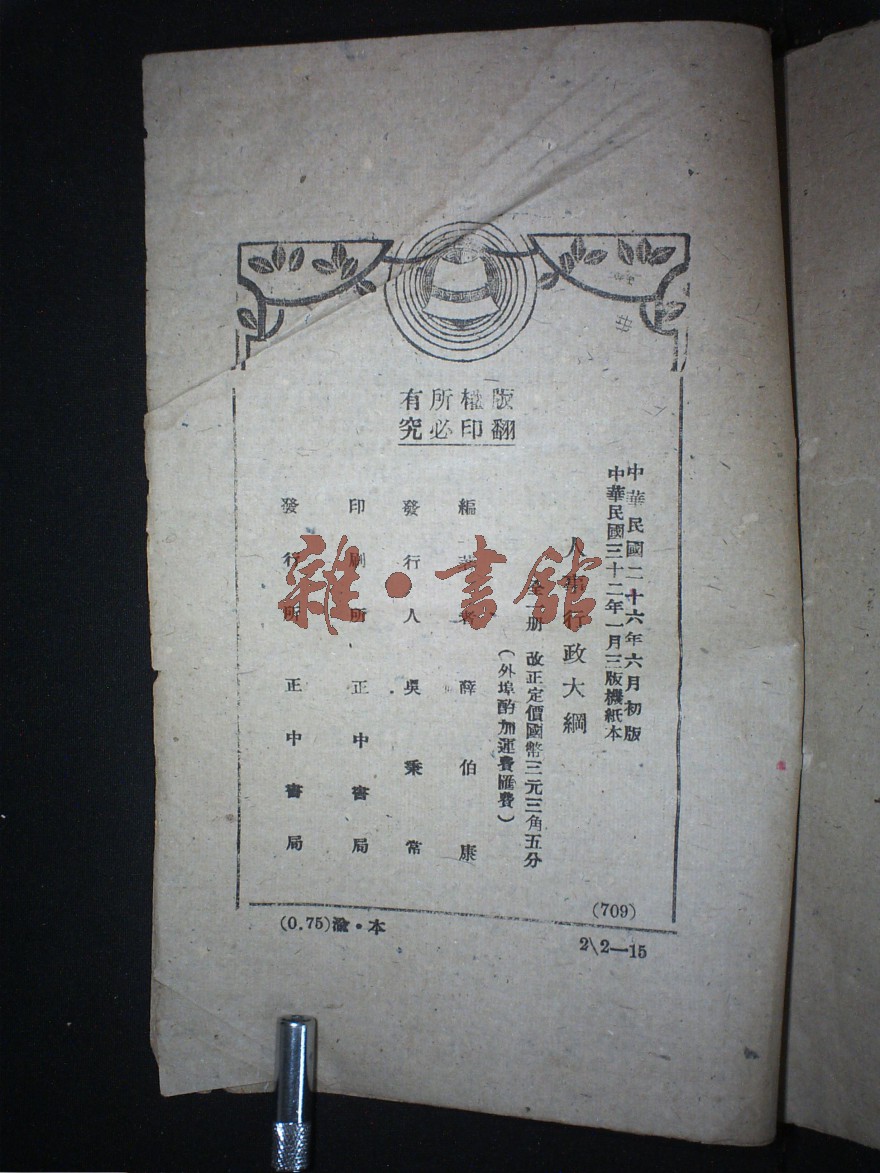 版權所有
翻印必究
中華民國二十六年六月初版
中華民國三十二年一月三版機紙本
人事行政大綱
全一册 改正定價國幣三元三角五分
(外埠酌加運費匯費)
編著者 薛伯康
發行人 吳秉常
印刷所 正中書局
發行所 正中書局
(709)
(0.75)渝·本
2\2—15
雜·書館